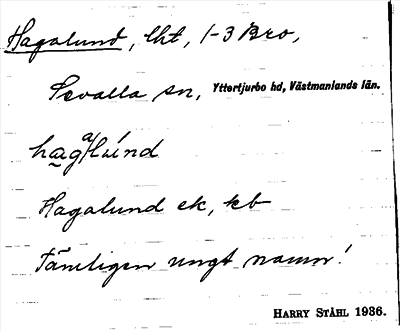 Hagalund, lht, 1-3 Bro,
Sevalla sn, Yttertjurbo hd, Västmanlands län.
Hagalund ek, kb
Tämligen ungt namn!
HARRY STÅHL 1936.